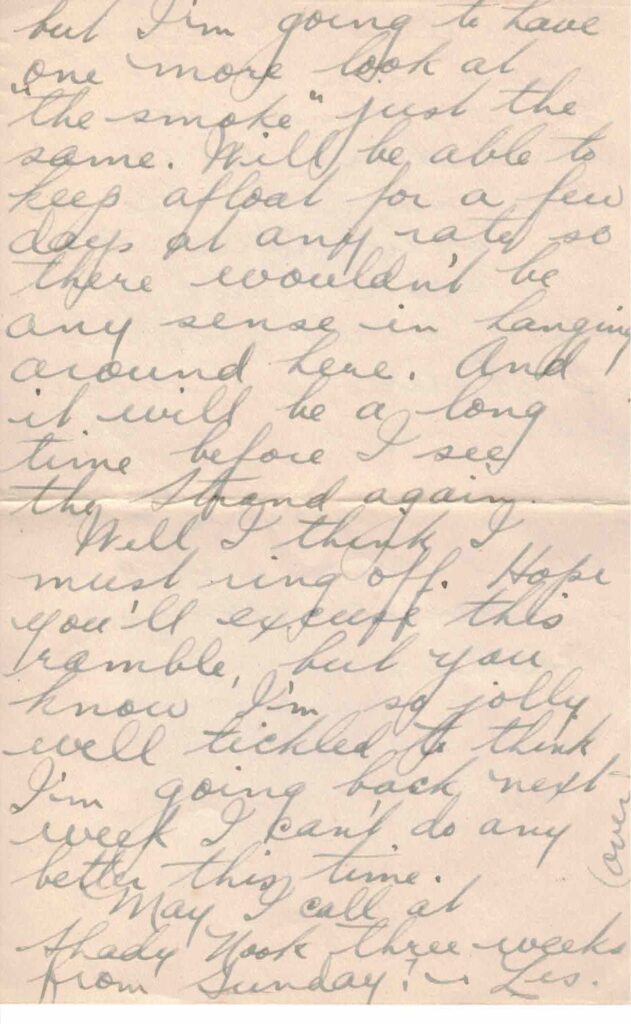 but I'm going to have
one more look at
"the smoke" just the
same. Will be able to
keep afloat for a few
days at any rate so
there wouldn't be
any sense in hanging
around here. And
it will be a long
time before I see
the Strand again.
Well I think I
must ring off. Hope
you'll excuse this
ramble, but you
know I'm so jolly
well tickled to think
I'm going back next
week I can't do any
better this time.
May I call at
Shady Nook three weeks
from Sunday? – Les.
(over